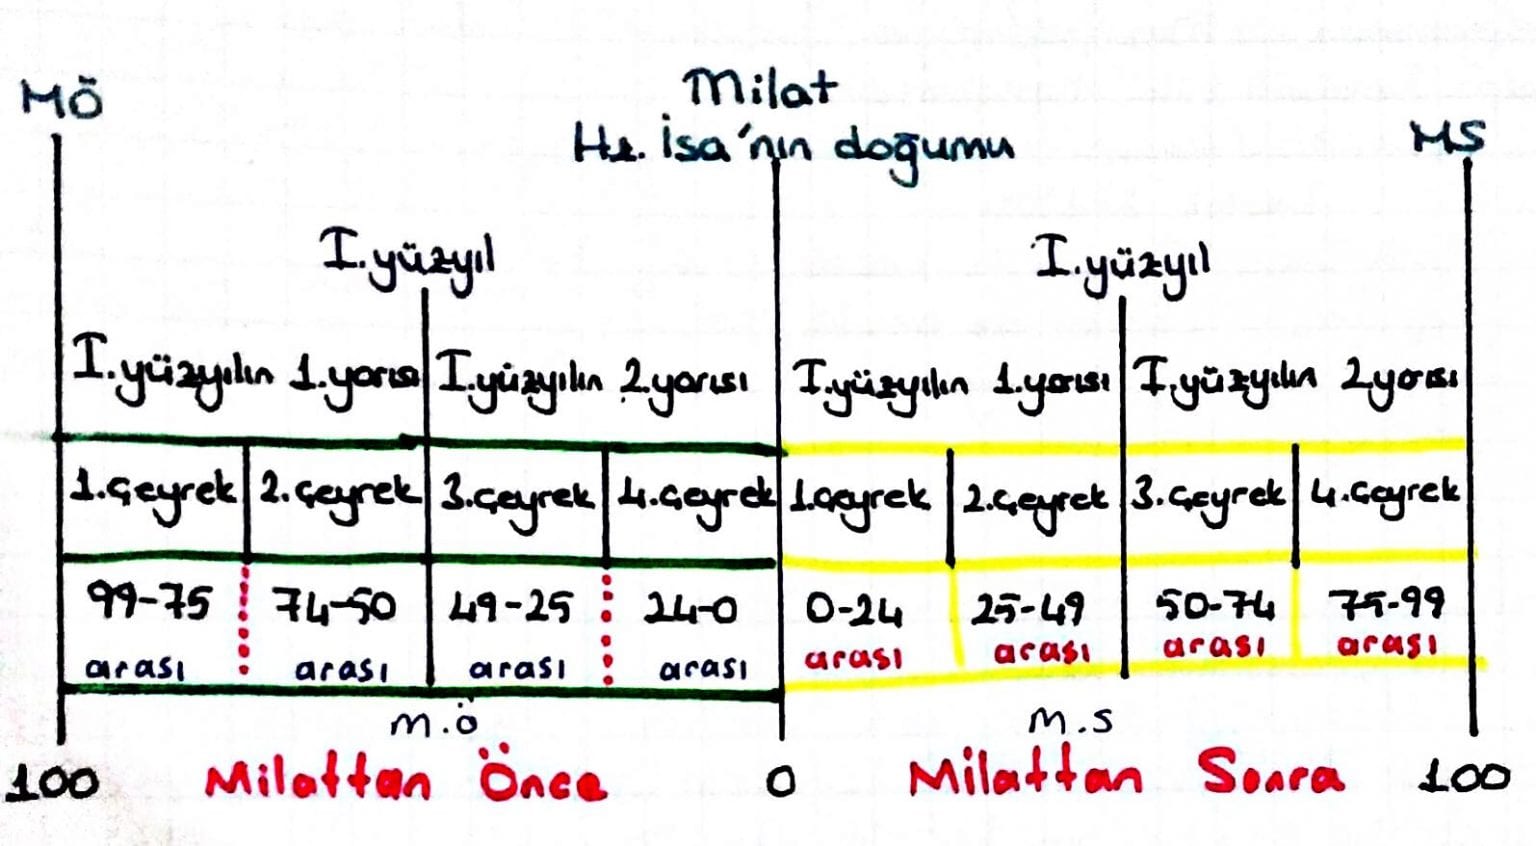 MÖ
Milat
MS
Hz. İsa'nın doğumu
I.yüzyıl
I.yüzyıl
I.yüzyılın 1.yarısı
I.yüzyılın 2.yarısı
I.yüzyılın 1.yarısı
I.yüzyılın 2.yarısı
1.çeyrek
2.çeyrek
3.çeyrek
4.çeyrek
1.çeyrek
2.çeyrek
3.çeyrek
4.çeyrek
99-75
74-50
49-25
24-0
0-24
25-49
50-74
75-99
arası
arası
arası
arası
arası
arası
arası
arası
m.ö
m.s
100
Milattan Önce
0
Milattan Sonra
100